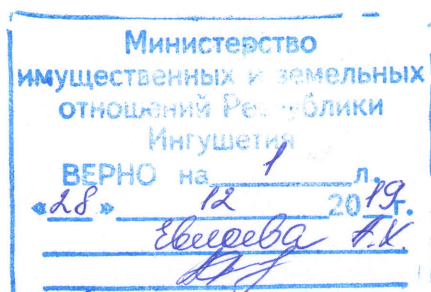 Министерство
имущественных и земельных
отношений Республики
Ингушетия
ВЕРНО на 1 л.
«28» 12 2019г.
Евлоева А.К.